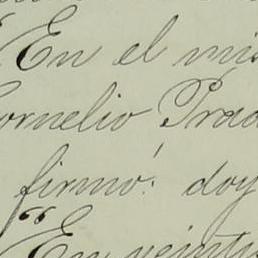 "En el mis
Cornelio Prad
firmó: doy
"En veinti